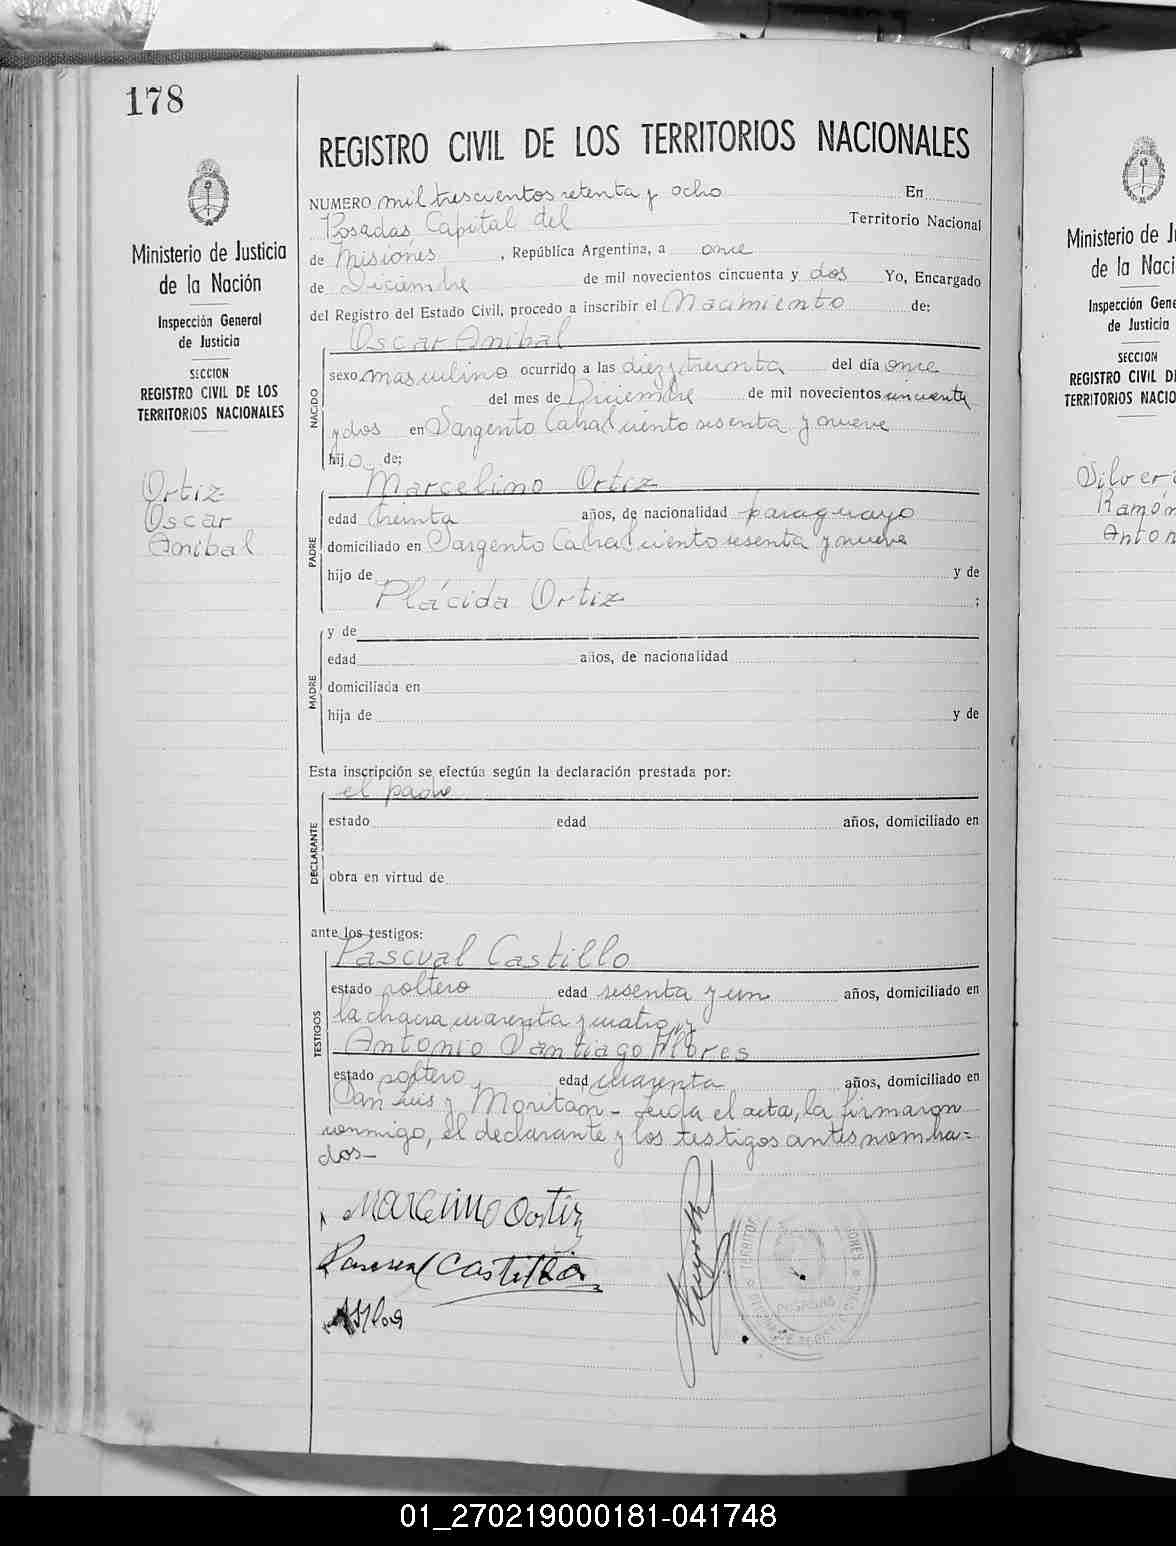 178
REGISTRO CIVIL DE LOS TERRITORIOS NACIONALES
Ministerio de Justicia
de la Nación
Inspección General
de Justicia
SECCION
REGISTRO CIVIL DE LOS
TERRITORIOS NACIONALES
Ortiz
Oscar
Anibal
NUMERO mil trescientos setenta y ocho En
Posadas Capital del Territorio Nacional
de Misiones, República Argentina, a once
de Diciembre de mil novecientos cincuenta y dos Yo, Encargado
del Registro del Estado Civil, procedo a inscribir el Nacimiento de:
Oscar Anibal
NACIDO
sexo masculino ocurrido a las diez y treinta del día once
del mes de Diciembre de mil novecientos cincuenta
y dos en Sargento Cabral ciento sesenta y nueve
hijo de;
Marcelino Ortiz
PADRE
edad treinta años, de nacionalidad paraguayo
domiciliado en Sargento Cabral ciento sesenta y nueve
hijo de y de
Plácida Ortiz ;
MADRE
y de
edad años, de nacionalidad
domiciliada en
hija de y de
Esta inscripción se efectúa según la declaración prestada por:
el padre
DECLARANTE
estado edad años, domiciliado en
obra en virtud de
ante los testigos:
Pascual Castillo
TESTIGOS
estado soltero edad sesenta y un años, domiciliado en
la chacra cuarenta y cuatro, y
Antonio Santiago Flores
estado soltero, edad cuarenta años, domiciliado en
San Luis y Moritán - Leida el acta, la firmaron
conmigo, el declarante y los testigos antes nombra=
dos-
Marcelino Ortiz
Pascual Castillo
POSADAS
Ministerio de J
de la Naci
Inspección Gene
de Justicia
SECCION
REGISTRO CIVIL D
TERRITORIOS NACIO
Silver
Ramón
Anton
01_270219000181-041748